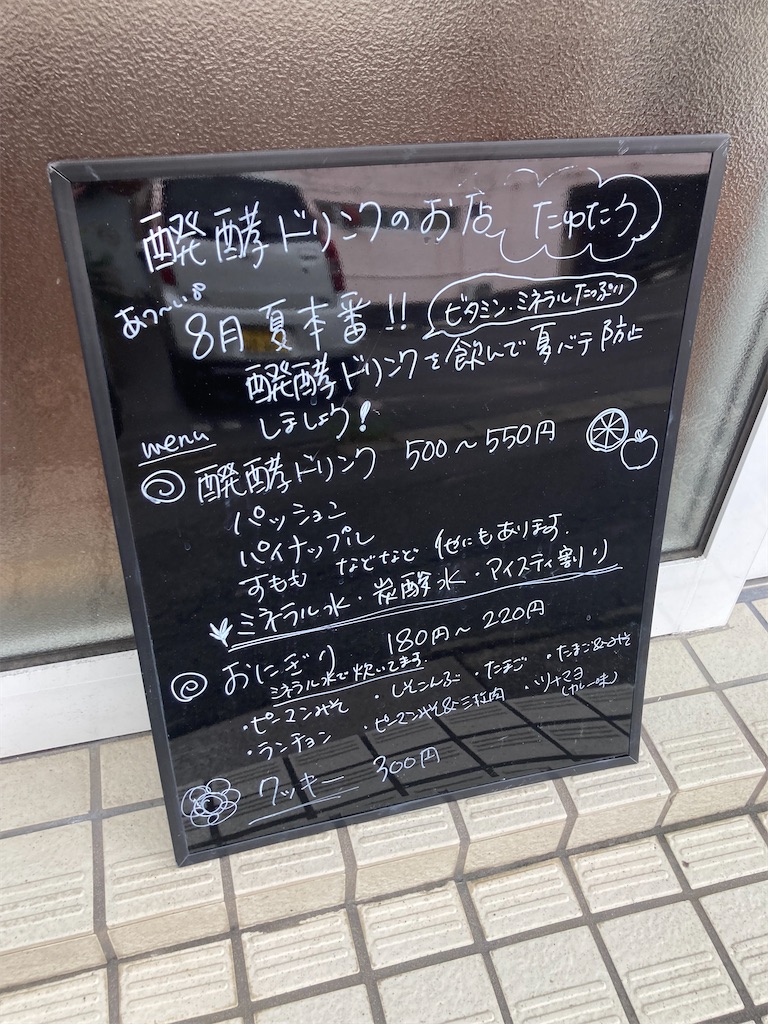 醗酵ドリンクのお店 たゆたう
あつ〜い
8月 夏本番!! ビタミン・ミネラルたっぷり
醗酵ドリンクを飲んで夏バテ防止
しましょう!
menu
醗酵ドリンク 500〜550円
パッション
パイナップル
すもも などなど 他にもあります.
ミネラル水・炭酸水・アイスティ割り
おにぎり 180円〜220円
ミネラル水で炊いてます.
・ピーマンみそ ・しそこんぶ ・たまご ・たまご&みそ
・ランチョン ・ピーマンみそ&三枚肉 ・ツナマヨ
(カレー味)
クッキー 300円